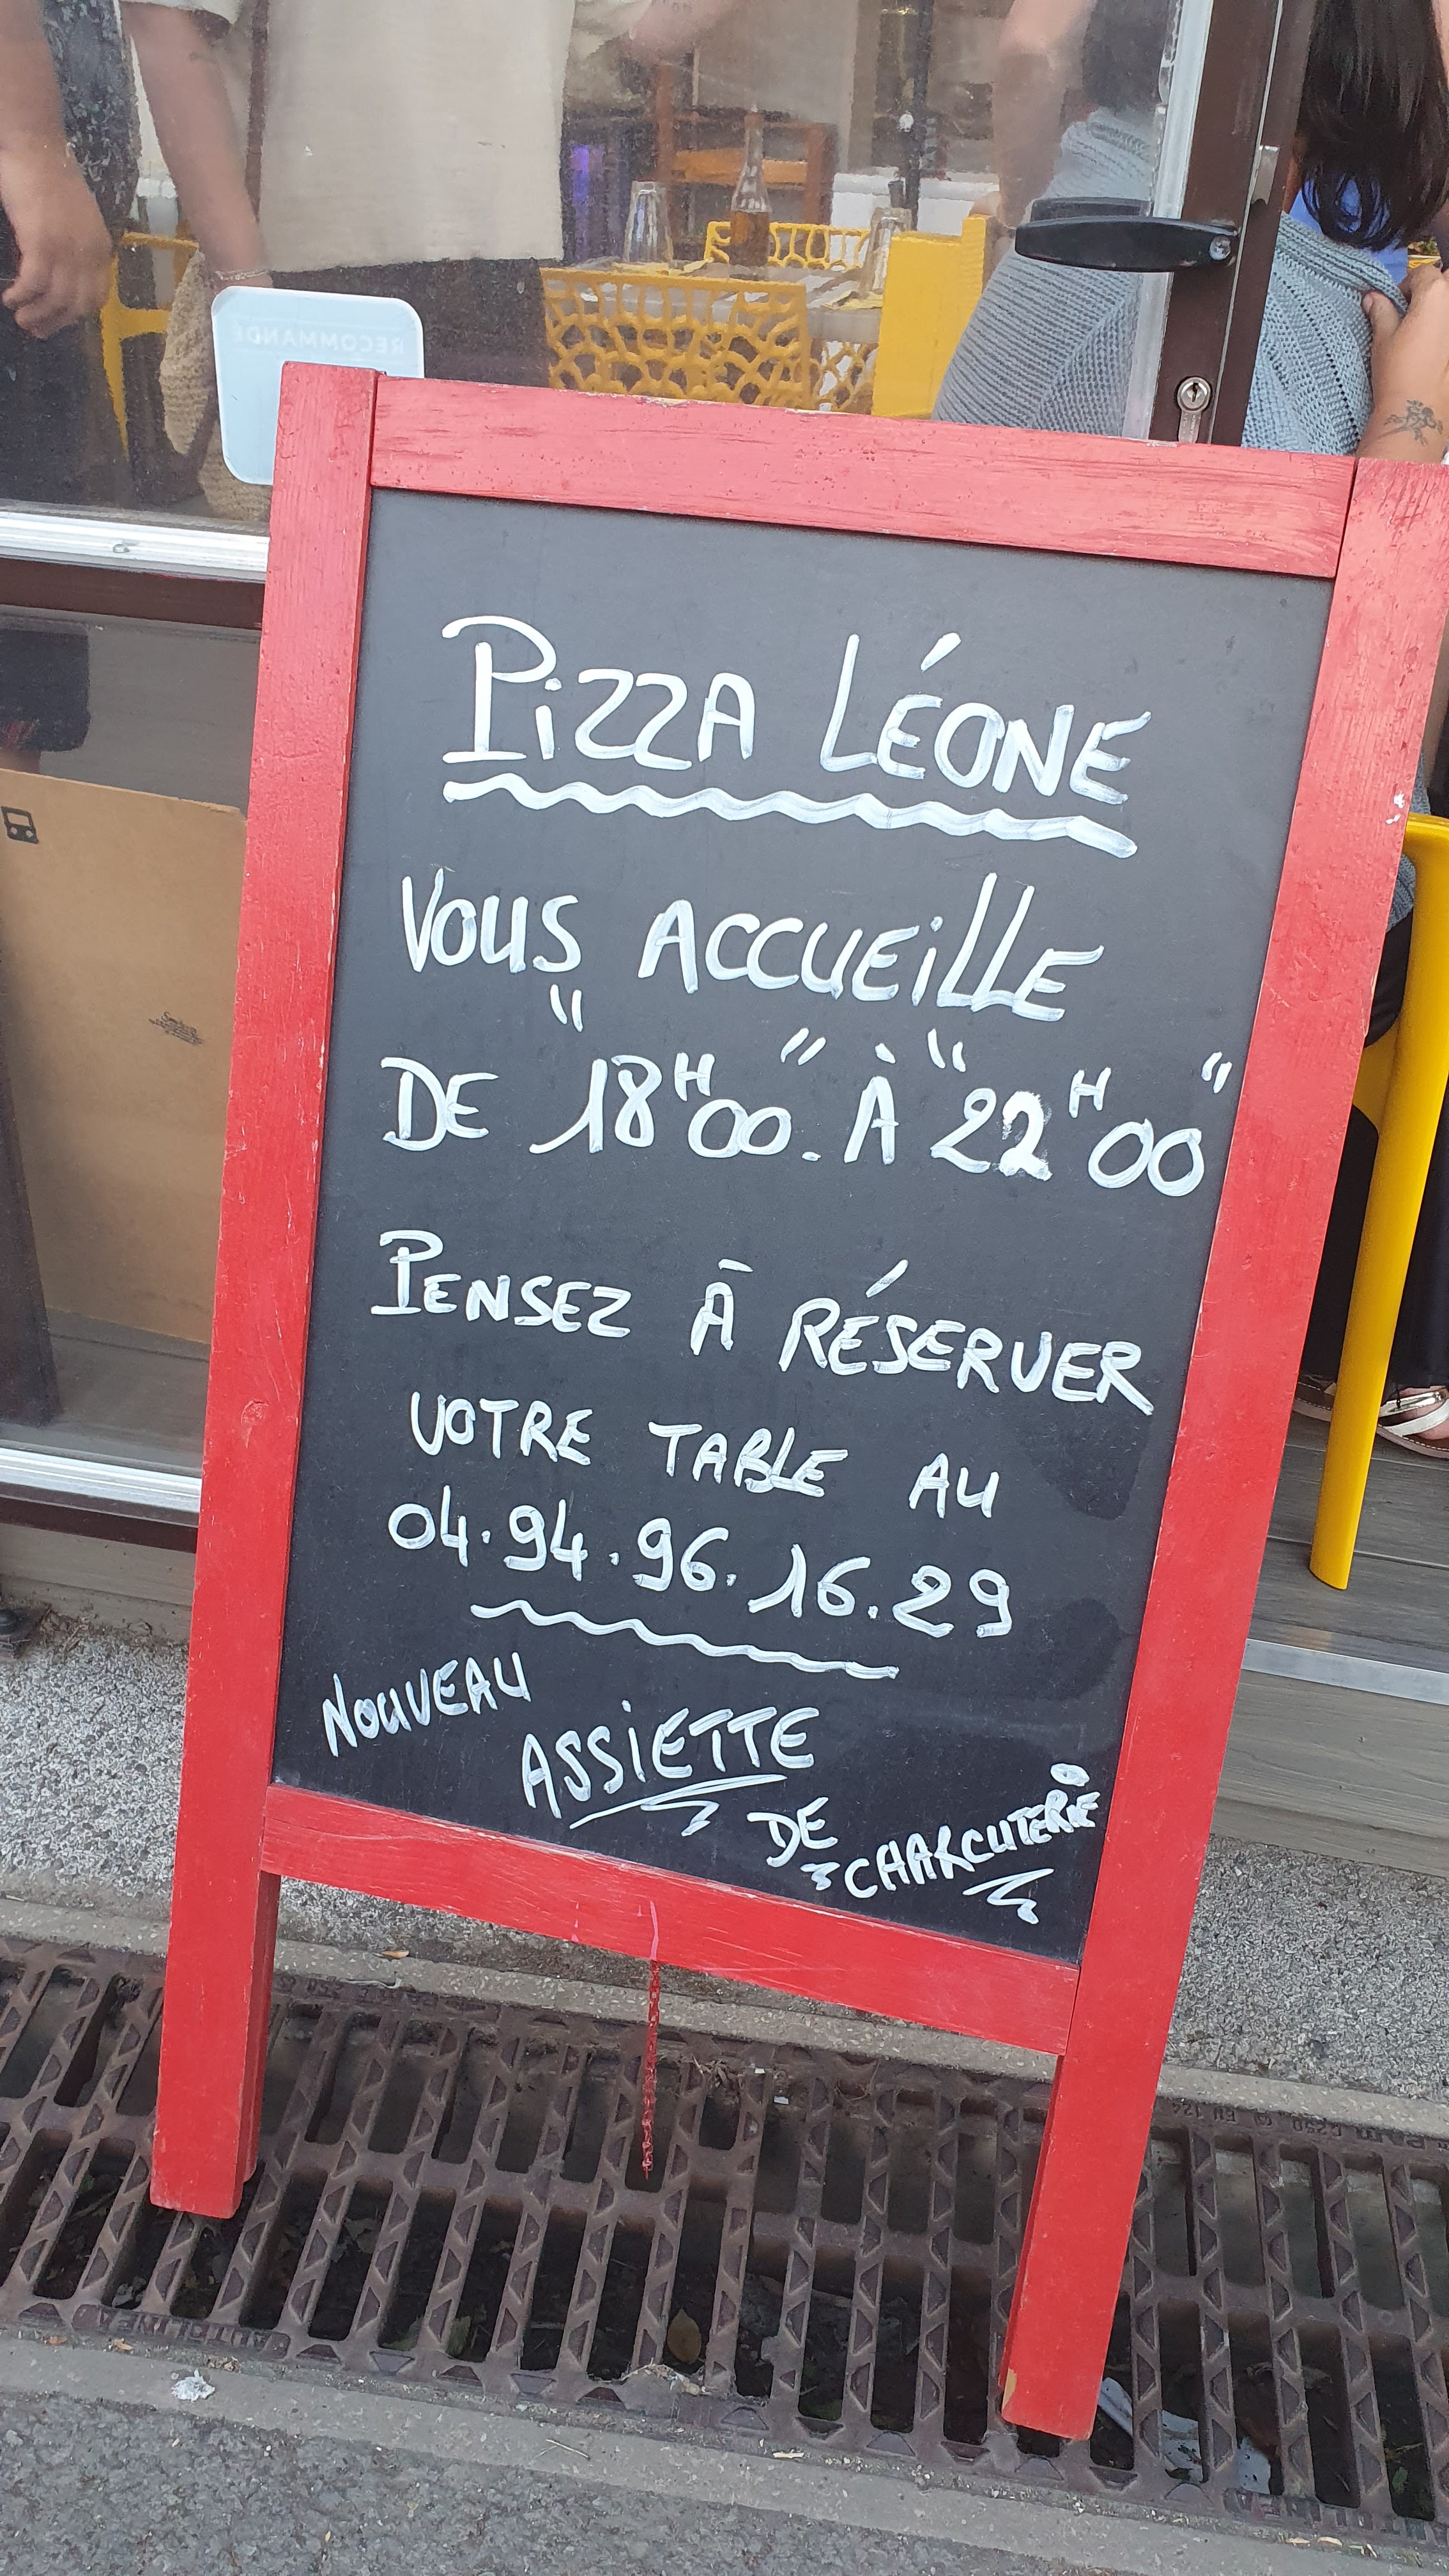 RECOMMANDÉ
PIZZA LÉONE
VOUS ACCUEILLE
DE "18H00". À "22H00"
PENSEZ À RÉSERVER
VOTRE TABLE AU
04.94.96.16.29
NOUVEAU
ASSIETTE
DE CHARCUTERIE